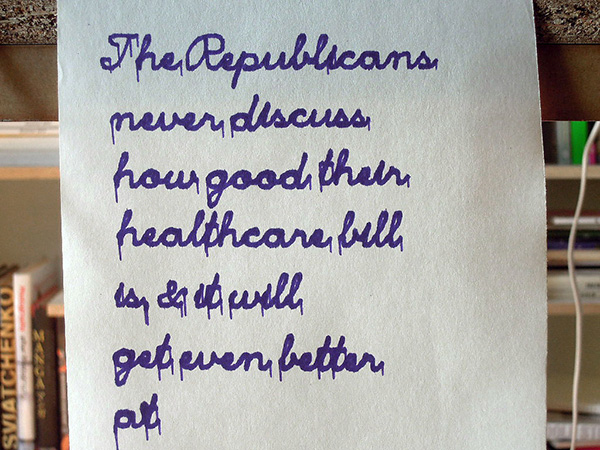 The Republicans
never discuss
how good their
healthcare bill
is, & it will
get even better
at
SVIATCHENKO